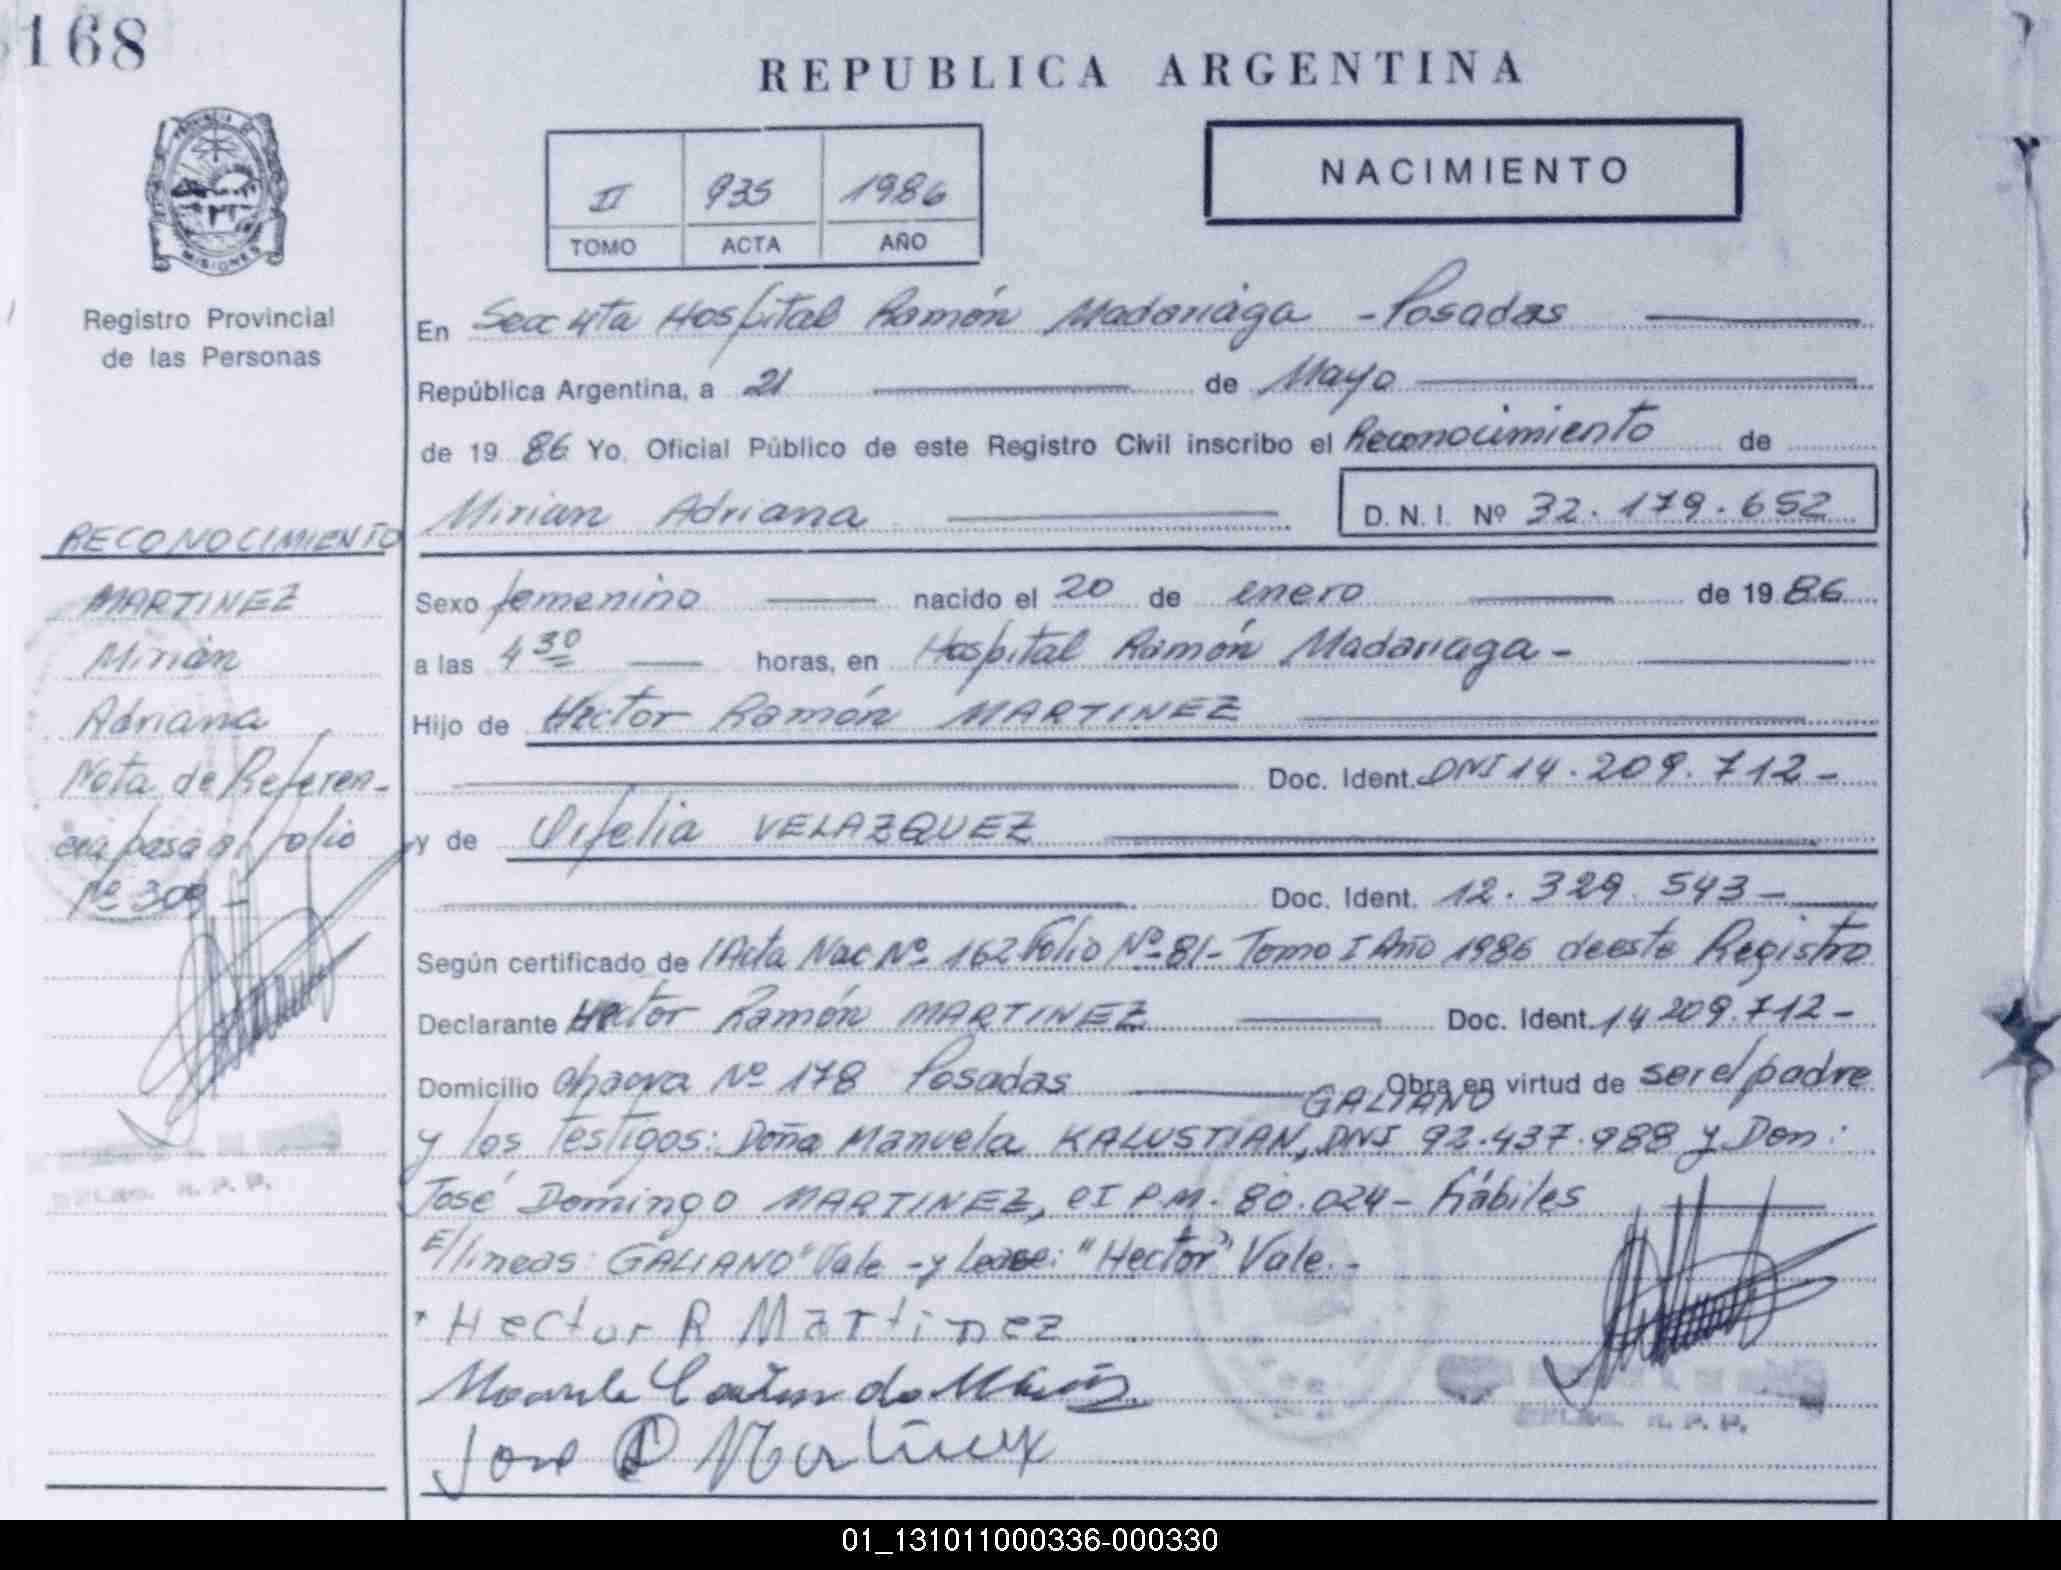 168
REPUBLICA ARGENTINA
PROVINCIA DE
MISIONES
Registro Provincial
de las Personas
II 935 1986
TOMO ACTA AÑO
NACIMIENTO
En Secc 4ta Hospital Ramón Madariaga - Posadas
República Argentina, a 21 de Mayo
de 19 86 Yo, Oficial Público de este Registro Civil inscribo el Reconocimiento de
Mirian Adriana D. N. I. Nº 32.179.652
Sexo femenino nacido el 20 de enero de 19 86
a las 4 30 horas, en Hospital Ramón Madariaga -
Hijo de Hector Ramón MARTINEZ
Doc. Ident. DNI 14.209.712 -
y de Orfelia VELAZQUEZ
Doc. Ident. 12.329.543 -
Según certificado de Acta Nac Nº 162 Folio Nº 81 - Tomo I Año 1986 de este Registro
Declarante Hector Ramón MARTINEZ Doc. Ident. 14 209.712 -
Domicilio Nº 178 Posadas Obra en virtud de ser el padre
GALIANO
y los testigos: Doña Manuela KALUSTIAN, DNI 92.437.988 y Don:
José Domingo MARTINEZ, CI P.M. 80.024 - hábiles
E/lineas: GALIANO" Vale - y "Hector" Vale. -
Hector R Martinez
José D Martinez
R. P. P.
RECONOCIMIENTO
MARTINEZ
Mirian
Adriana
Nota de Referen-
cia pasa al folio
Nº 309 -
R. P. P.
01_131011000336-000330